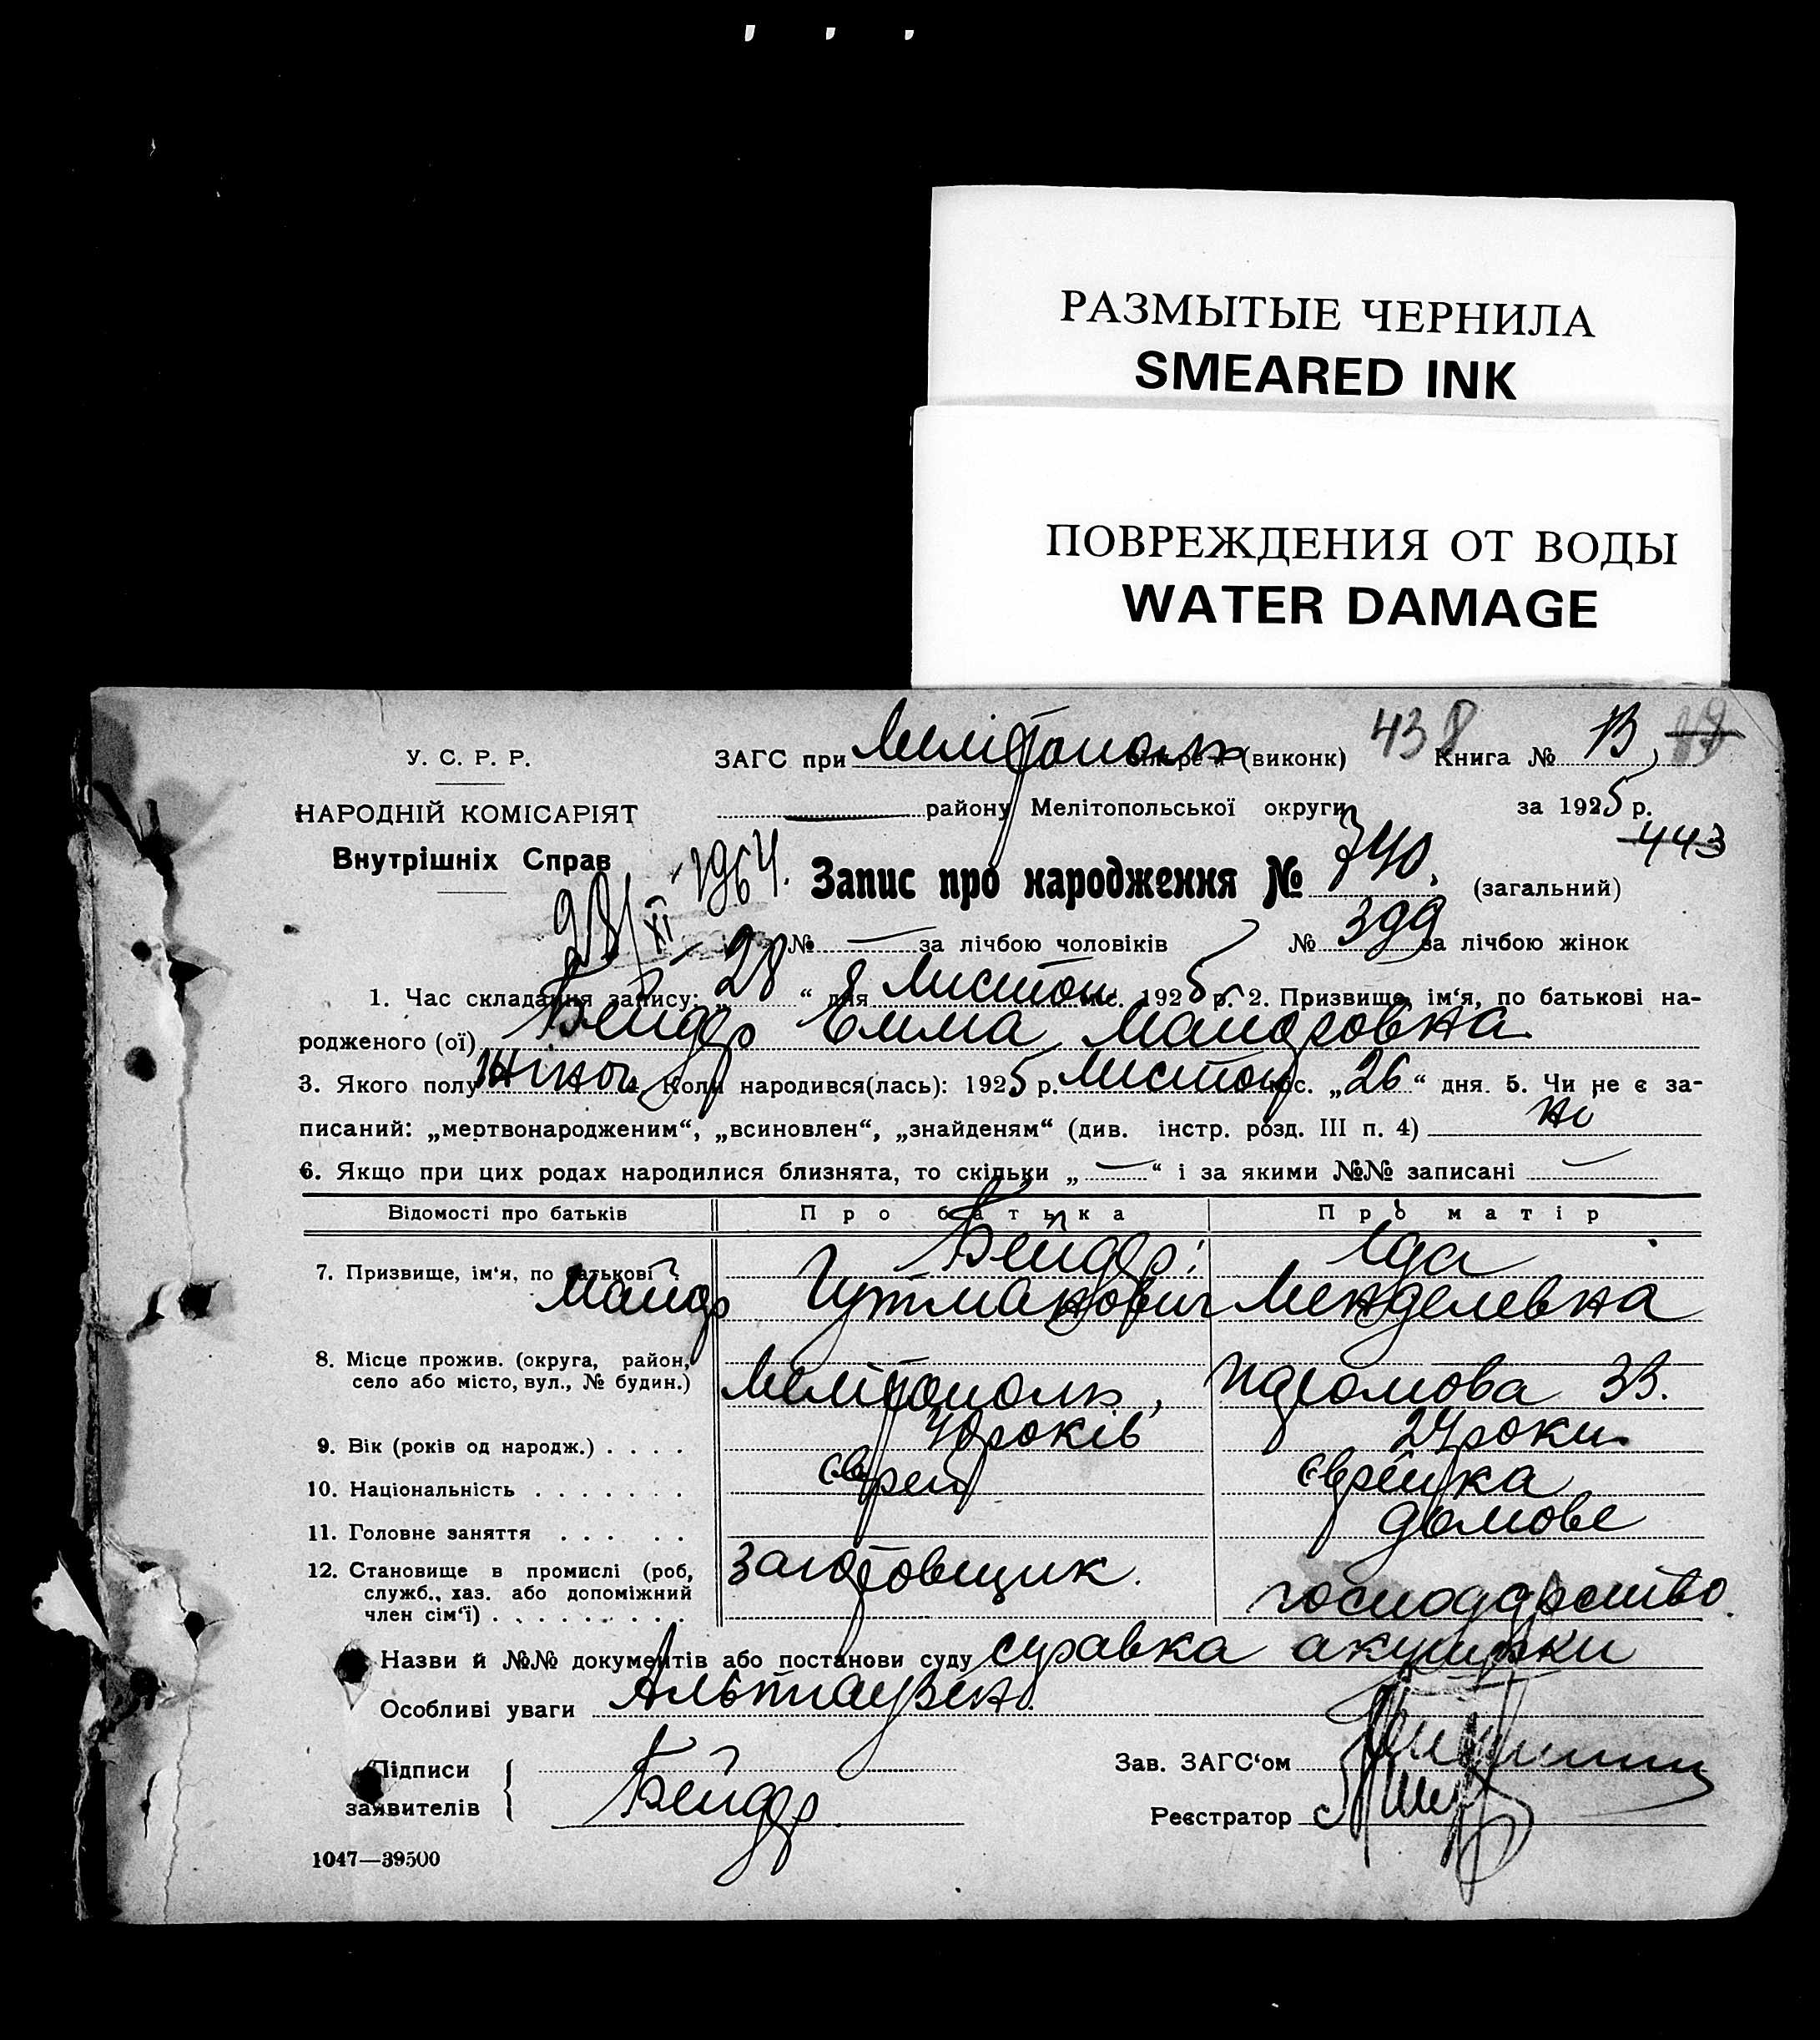 РАЗМЫТЫЕ ЧЕРНИЛА
SMEARED INK
ПОВРЕЖДЕНИЯ ОТ ВОДЫ
WATER DAMAGE
У. С. Р. Р.
НАРОДНІЙ КОМІСАРІЯТ
Внутрішніх Справ
28/XI - 1964.
ЗАГС при Мелітополь (виконк) 438 Книга №
району Мелітопольської округи за 1925 р.
443
Запис про народження № 740. (загальний)
№ — за лічбою чоловіків № 399 за лічбою жінок
1. Час складання запису: „28“ дня Листоп міс. 1925 р. 2. Призвище, ім‘я, по батькові на-
родженого (ої) Бейдер Емма Майоровна
3. Якого полу жіноч. 4. Коли народився(лась): 1925 р. Листоп міс. „26“ дня. 5. Чи не є за-
писаний: „мертвонародженим“, „всиновлен“, „знайденям“ (див. інстр. розд. III п. 4) ні
6. Якщо при цих родах народилися близнята, то скільки „—“ і за якими №№ записані —
Відомості про батьків Про батька Про матір
7. Призвище, ім‘я, по батькові Бейдер Еда
Гутманович Менделевна
8. Місце прожив. (округа, район,
село або місто, вул., № будин.) Мелітополь, 33.
9. Вік (років од народж.) . . . . 40 років 24 роки
10. Національність . . . . . . . єврей єврейка
11. Головне заняття . . . . . домове
12. Становище в промислі (роб, заготовщик.
служб., хаз. або допоміжний господарство.
член сім‘ї) . . . . . . . . .
Назви й №№ документів або постанови суду справка акушерки
Особливі уваги Альтгаузен.
Підписи
заявителів { Бейдер
Зав. ЗАГС‘ом
Реєстратор
1047—39500